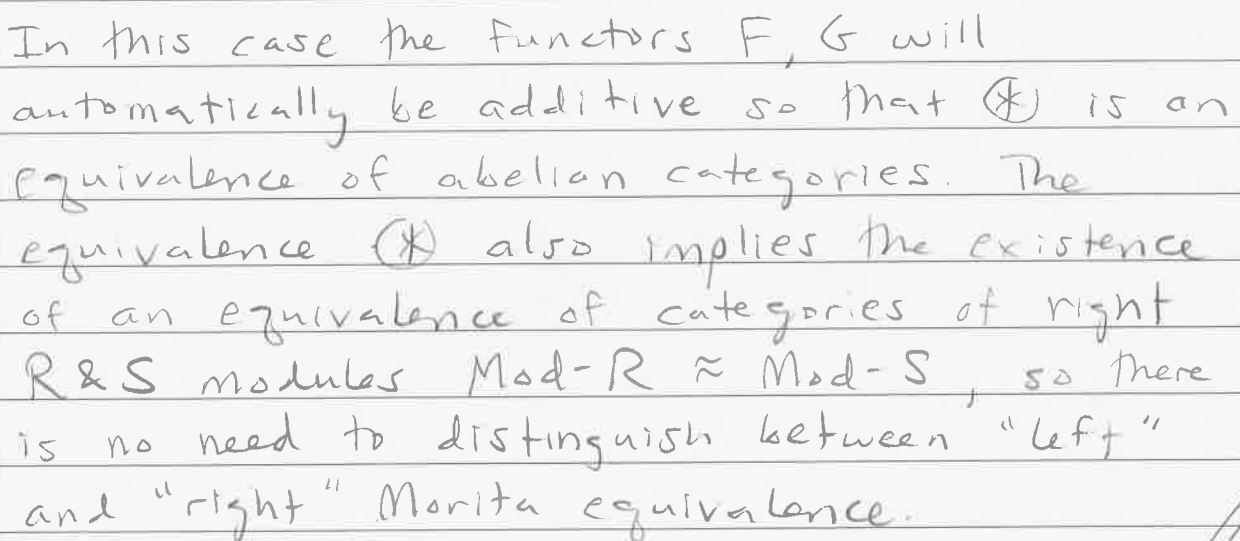 In this case the functors F, G will
automatically be additive so that ⊛ is an
equivalence of abelian categories. The
equivalence ⊛ also implies the existence
of an equivalence of categories of right
R & S modules Mod-R ≈ Mod-S, so there
is no need to distinguish between "left"
and "right" Morita equivalence.